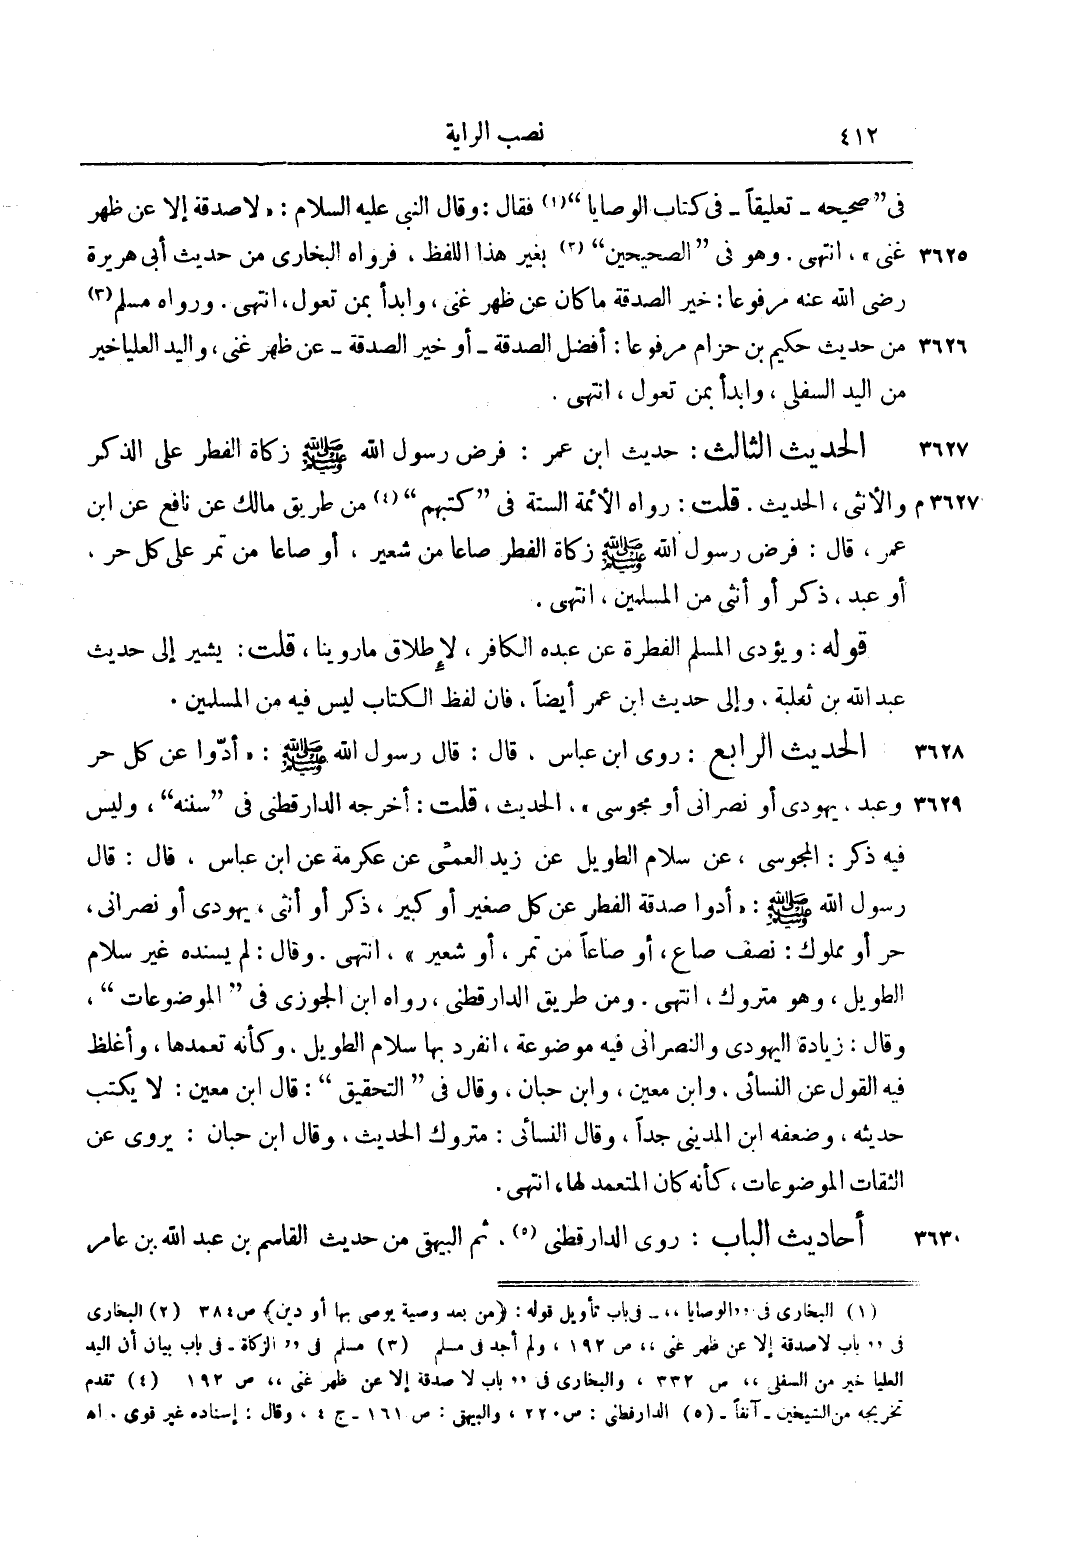 ٤١٢ نصب الراية
فى "صحيحه ـ تعليقاً ـ فى كتاب الوصايا" (١) فقال : وقال النبى عليه السلام : « لا صدقة إلا عن ظهر
٣٦٢٥ غنى » ، انتهى . وهو فى "الصحيحين" (٢) بغير هذا اللفظ ، فرواه البخارى من حديث أبى هريرة
رضى الله عنه مرفوعا : خير الصدقة ما كان عن ظهر غنى ، وابدأ بمن تعول ، انتهى . ورواه مسلم (٣)
٣٦٢٦ من حديث حكيم بن حزام مرفوعا : أفضل الصدقة ـ أو خير الصدقة ـ عن ظهر غنى ، واليد العليا خير
من اليد السفلى ، وابدأ بمن تعول ، انتهى .
٣٦٢٧ الحديث الثالث : حديث ابن عمر : فرض رسول الله ﷺ زكاة الفطر على الذكر
٣٦٢٧ م والأنثى ، الحديث . قلت : رواه الأئمة الستة فى "كتبهم" (٤) من طريق مالك عن نافع عن ابن
عمر ، قال : فرض رسول الله ﷺ زكاة الفطر صاعا من شعير ، أو صاعا من تمر على كل حر ،
أو عبد ، ذكر أو أنثى من المسلمين ، انتهى .
قوله : ويؤدى المسلم الفطرة عن عبده الكافر ، لإطلاق ماروينا ، قلت : يشير إلى حديث
عبد الله بن ثعلبة . وإلى حديث ابن عمر أيضاً ، فان لفظ الكتاب ليس فيه من المسلمين .
٣٦٢٨ الحديث الرابع : روى ابن عباس . قال : قال رسول الله ﷺ : « أدّوا عن كل حر
٣٦٢٩ وعبد . يهودى أو نصرانى أو مجوسى » ، الحديث ، قلت : أخرجه الدارقطنى فى "سننه" ، وليس
فيه ذكر : المجوسى ، عن سلام الطويل عن زيد العمىّ عن عكرمة عن ابن عباس ، قال : قال
رسول الله ﷺ : « أدوا صدقة الفطر عن كل صغير أو كبير ، ذكر أو أنثى ، يهودى أو نصرانى ،
حر أو مملوك : نصف صاع ، أو صاعاً من تمر ، أو شعير » ، انتهى . وقال : لم يسنده غير سلام
الطويل ، وهو متروك ، انتهى . ومن طريق الدارقطنى ، رواه ابن الجوزى فى "الموضوعات" ،
وقال : زيادة اليهودى والنصرانى فيه موضوعة ، انفرد بها سلام الطويل . وكأنه تعمدها ، وأغلظ
فيه القول عن النسائى . وابن معين ، وابن حبان ، وقال فى "التحقيق" : قال ابن معين : لا يكتب
حديثه ، وضعفه ابن المدينى جداً ، وقال النسائى : متروك الحديث ، وقال ابن حبان : يروى عن
الثقات الموضوعات ، كأنه كان المتعمد لها ، انتهى .
٣٦٣٠ أحاديث الباب : روى الدارقطنى (٥) . ثم البيهقى من حديث القاسم بن عبد الله بن عامر
(١) البخارى فى ,,الوصايا ,, ـ فى باب تأويل قوله : {من بعد وصية يوصى بها أو دين} ص ٣٨٤ (٢) البخارى
فى ,, باب لا صدقة إلا عن ظهر غنى ,, ص ١٩٢ ، ولم أجد فى مسلم (٣) مسلم فى ,, الزكاة ـ فى باب بيان أن اليد
العليا خير من السفلى ,, ص ٣٣٢ ، والبخارى فى ,, باب لا صدقة إلا عن ظهر غنى ,, ص ١٩٢ (٤) تقدم
تخريجه من الشيخين ـ آنفاً ـ (٥) الدارقطنى : ص ٢٢٠ ، والبيهقى : ص ١٦١ ـ ج ٤ ، وقال : إسناده غير قوى . اه